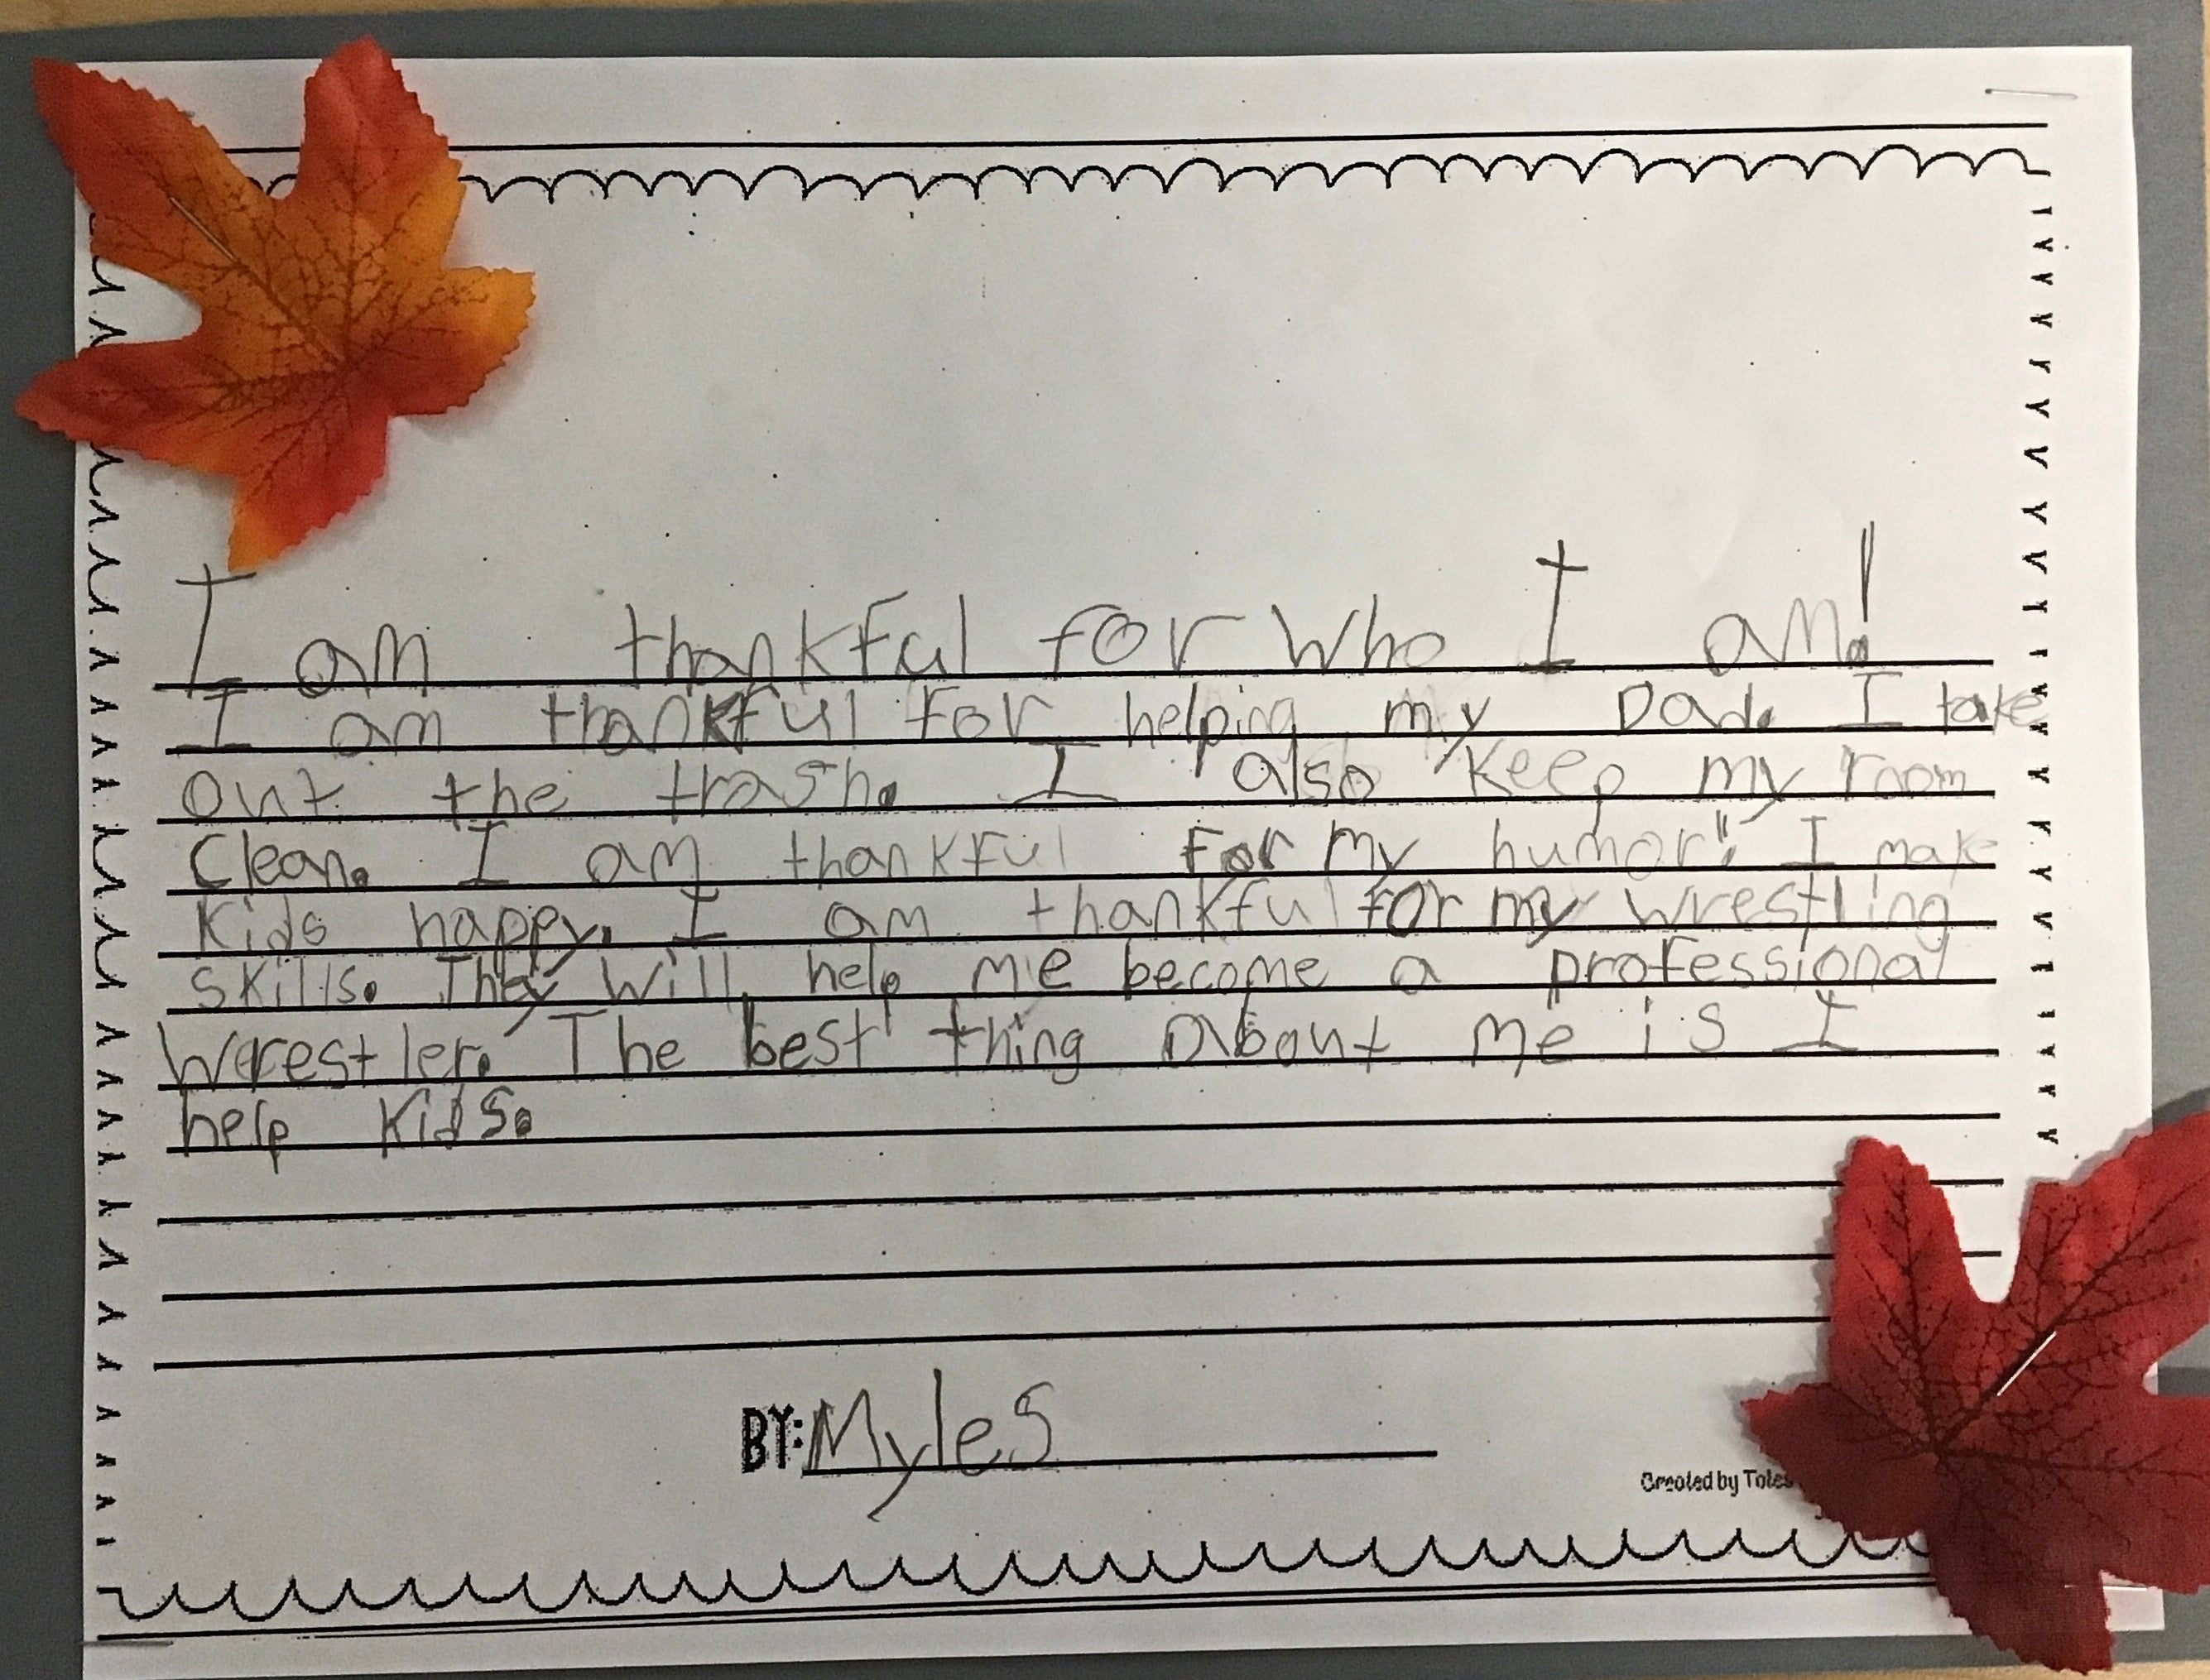 I am thankful for who I am!
I am thankful for helping my Dad. I take
out the trash. I also keep my room
Clean. I am thankful For my humor. I make
Kids happy. I am thankful for my wrestling
skills. They will help me become a professional
Wrestler. The best thing About me is I
help kids.
BY: Myles
Created by